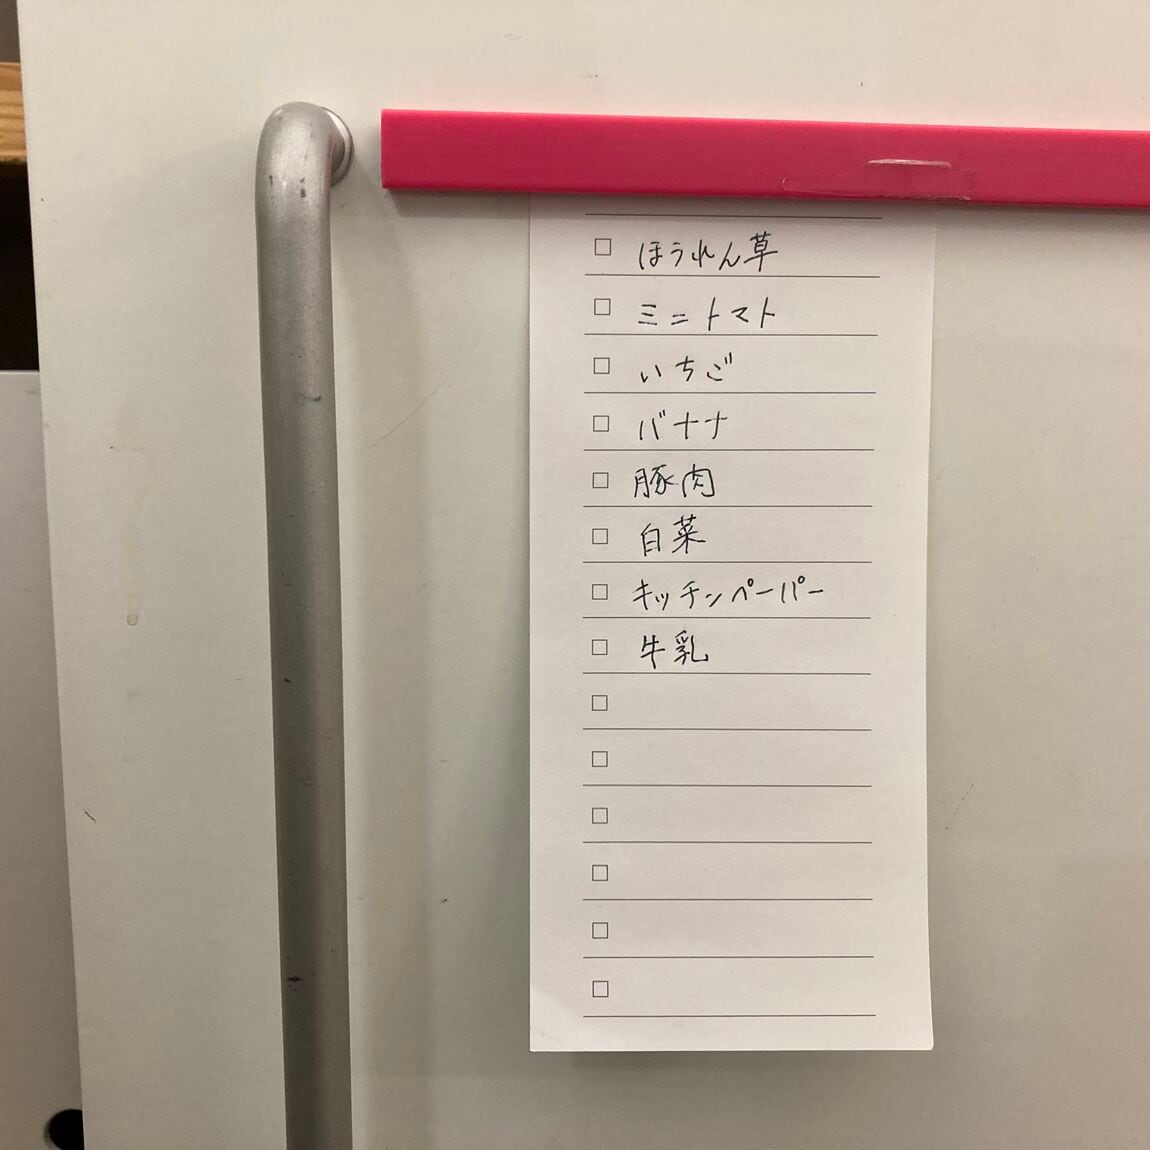 □ ほうれん草
□ ミニトマト
□ いちご
□ バナナ
□ 豚肉
□ 白菜
□ キッチンペーパー
□ 牛乳
□
□
□
□
□
□